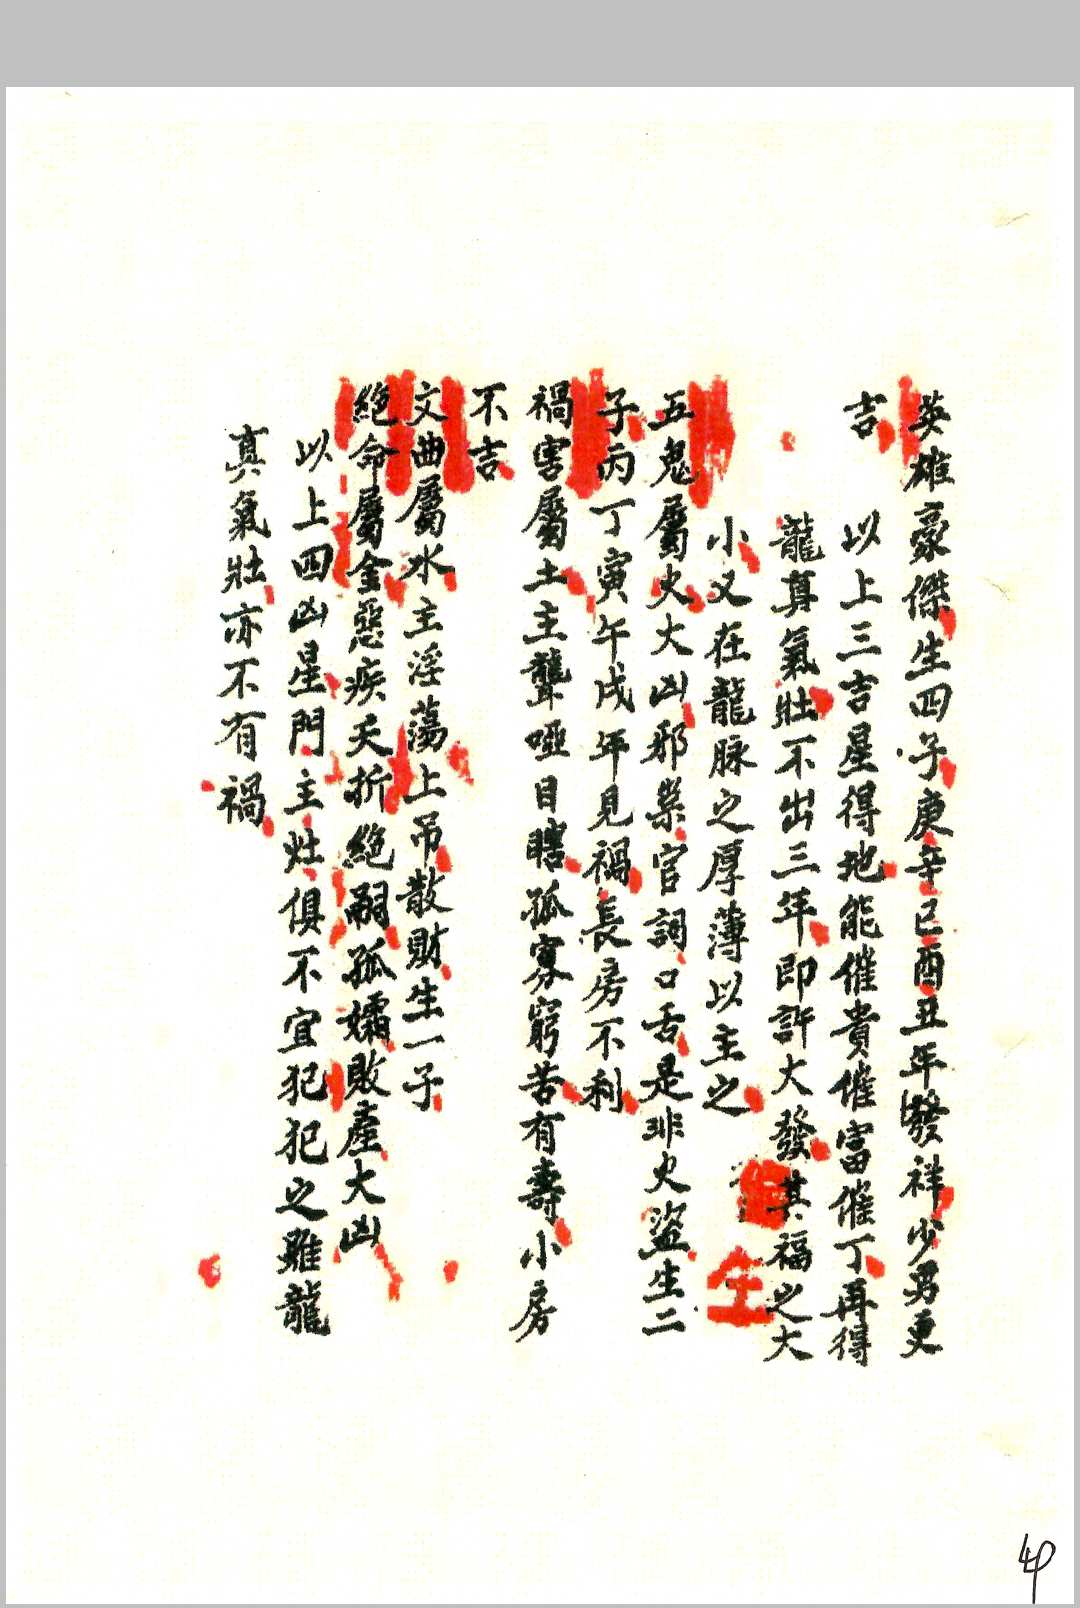 英雄豪傑生四子庚辛巳酉丑年發祥少男更
吉
以上三吉星得地能催貴催富催丁再得
龍真氣壯不出三年即許大發其福之大
小又在龍脉之厚薄以主之
五鬼屬火大凶邪祟官詞口舌是非火盜生二
子丙丁寅午戌年見禍長房不利
禍害屬土主聾啞目瞎孤寡窮苦有壽小房
不吉
文曲屬水主淫蕩上吊散財生一子
絕命屬金惡疾夭折絕嗣孤孀敗產大凶
以上四凶星門主灶俱不宜犯犯之雖龍
真氣壯亦不有禍